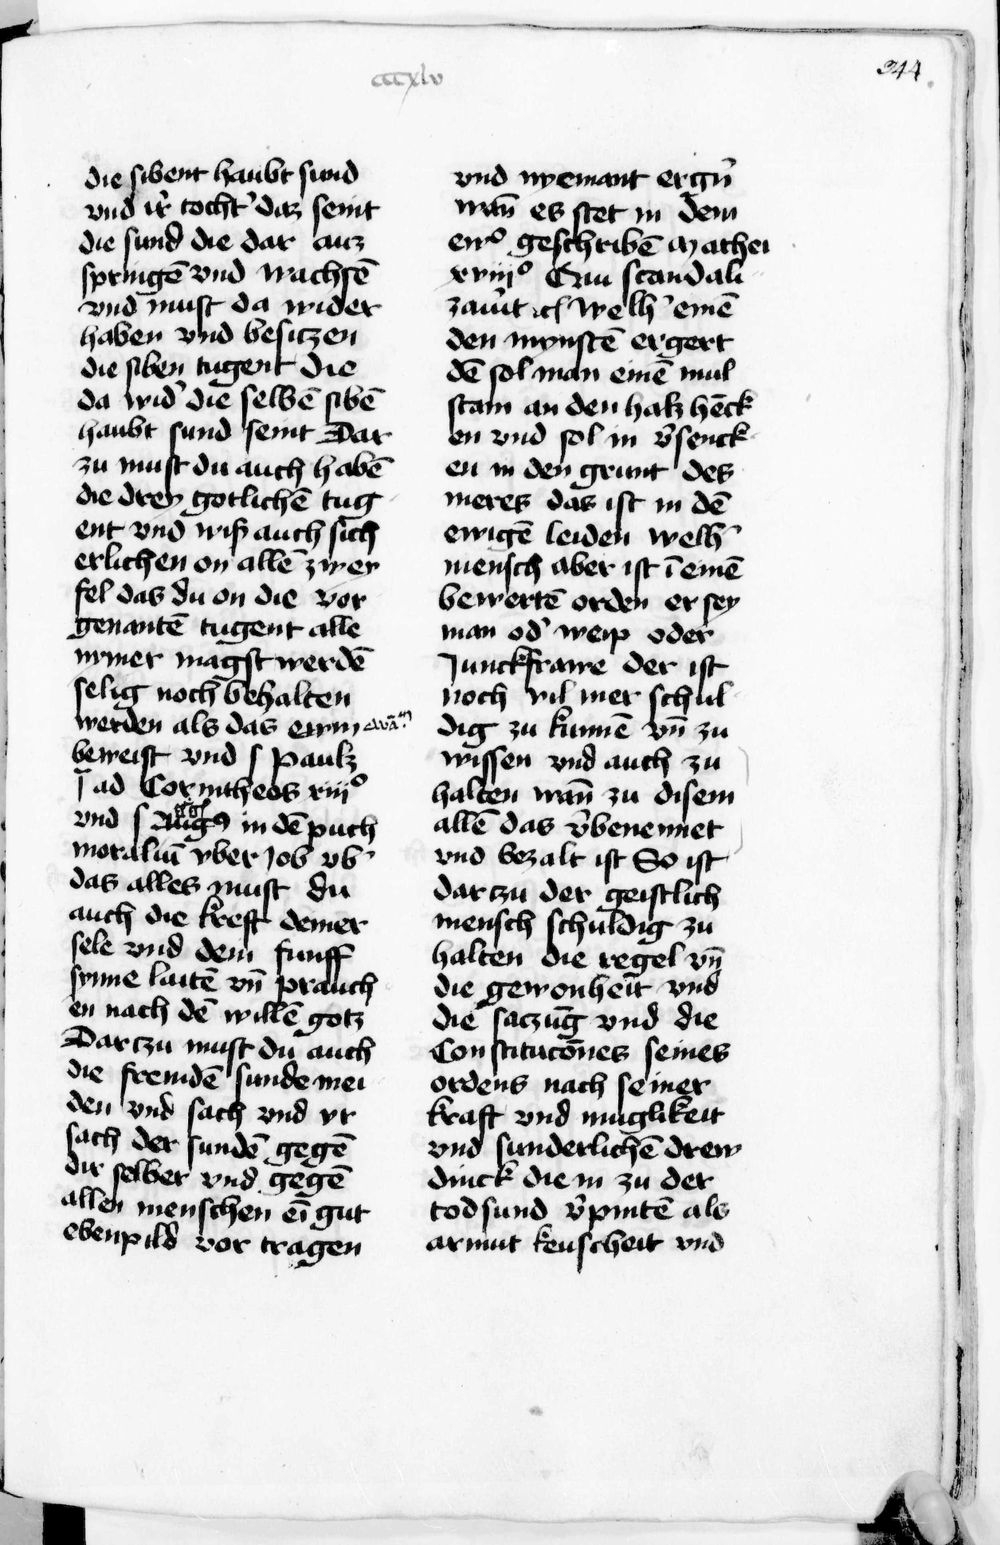 cccxlv
344.
die sibent haubt sund
vnd ir̉ tocht̉ daz seint
die sund die dar auz
springē vnd wachsē
vnd must da wider
haben vnd besitzen
die siben tugent die
da wid̉ die selbē sibē
haubt sund seint Dar
zu must du auch habē
die drey gotlichē tug
ent vnd wiß auch sich
erlichen on allē zwey
fel das du on die vor
genantē tugent alle
nymer magst werdē
selig noch behalten
werden als das ewm
beweist vnd s paulz
J ad Corintheos xiiiº
vnd s Augꝰ in dē puch
moraliū vber Job vb̉
das alles must du
auch die kreft deiner
sele vnd dein funff
synne laitē vn̄ prauch
en nach dē willē gotz
Dartzu must du auch
die fremdē sunde mei
den vnd sach vnd vr
sach der sundē gegē
dir selber vnd gegē
allen menschen ei̅ gut
ebenpild vor tragen
vnd nyemant ergn̉
wan̄ es stet in dem
ewº geschribē Mathei
xviiiº Qui scandali
zav̉it welh̉ einē
den mynstē ergert
dē sol man einē mul
stain an den halz hēck
en vnd sol in v̉senck
en in den grunt des
meres das ist in dē
ewigē leiden welh̉
mensch aber ist ī einē
bewertē orden er sey
man od̉ weip oder
Junckfrawe der ist
noch vil mer schul
dig zu kunnē vn̄ zu
wissen vnd auch zu
halten wan̄ zu disem
allē das v̉benennet
vnd bezalt ist So ist
dar zu der geistlich
mensch schuldig zu
halten die regel vn̄
die gewonheit vnd
die saczūg vnd die
Constitucōnes seines
ordens nach seiner
kraft vnd muglikeit
vnd sunderlichē drew
dinck die in zu der
todsund v̉pintē als
armut keuscheit vnd